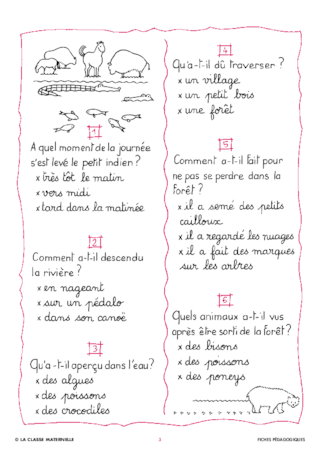 1
A quel moment de la journée
s'est levé le petit indien ?
x très tôt le matin
x vers midi
x tard dans la matinée
2
Comment a-t-il descendu
la rivière ?
x en nageant
x sur un pédalo
x dans son canoë
3
Qu'a-t-il aperçu dans l'eau?
x des algues
x des poissons
x des crocodiles
4
Qu'a-t-il dû traverser ?
x un village
x un petit bois
x une forêt
5
Comment a-t-il fait pour
ne pas se perdre dans la
forêt ?
x il a semé des petits
cailloux
x il a regardé les nuages
x il a fait des marques
sur les arbres
6
Quels animaux a-t-il vus
après être sorti de la forêt ?
x des bisons
x des poissons
x des poneys
© LA CLASSE MATERNELLE
FICHES PÉDAGOGIQUES